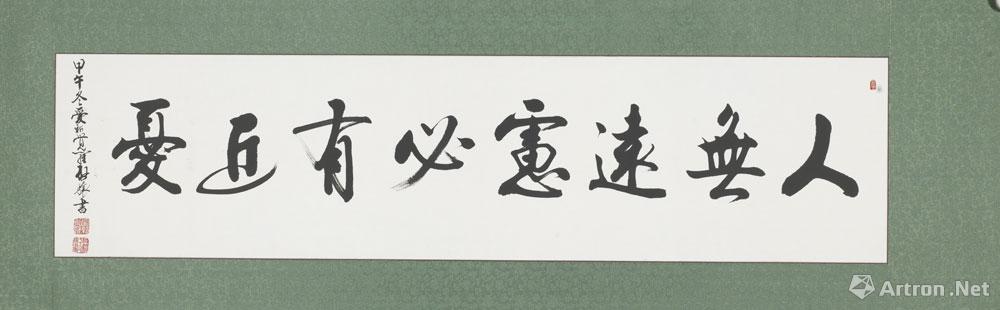 人無遠慮必有近憂
甲午冬愛新覺羅
書
Artron.Net